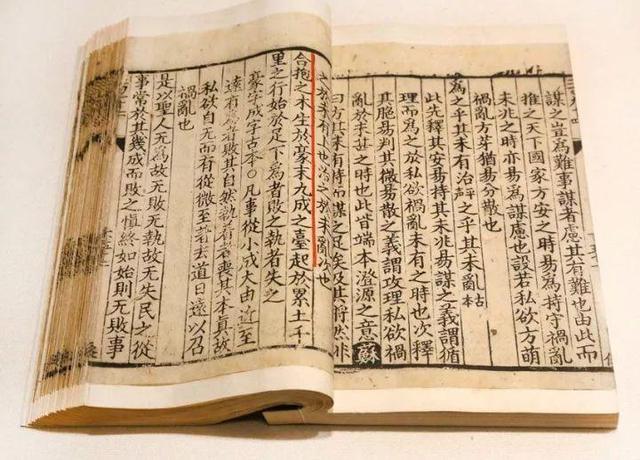 謀之豈爲難事謀者慮其有難也由此而
推之天下國家方安之時易爲持守禍亂
未兆之時亦易爲謀慮也設若私欲方萌
禍亂方芽猶易分散也
爲之乎其未有治之乎其未亂
此先釋其安易持其未兆易謀之義謂循
理而爲之於私欲禍亂未有之時也次釋
其脆易判其微易散之義謂攻理私欲禍
亂於未甚之時也此皆端本澄源之意
蘇
曰方其未有持而謀之足矣及其將然非
之於未有下也治之於未亂次也
合抱之木生於豪末九成之臺起於累土千
里之行始於足下爲者敗之執者失之
豪字成字古本○凡事從小成大由近至
遠有爲者敗其自然執有者喪其本真故
私欲自无而有從微至著去道日遠以召
禍亂也
是以聖人无爲故无敗无執故无失民之從
事常於其幾成而敗之慎終如始則无敗事